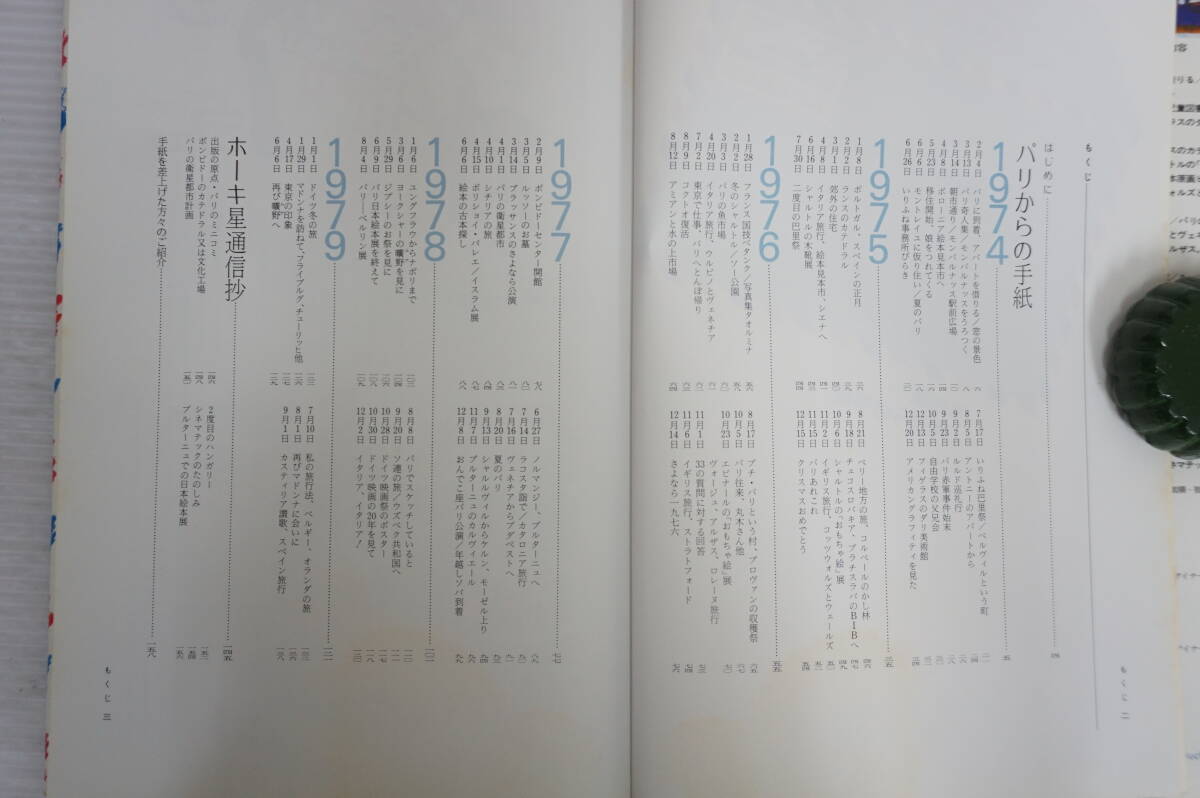 もくじ
はじめに
パリからの手紙
1974
2月4日 パリに到着、アパートを借りる/窓の景色
3月13日 パリ奇人集/モンパルナッスをうろつく
3月14日 朝市通り/モンパルナッス駅前広場
4月8日 ボローニア絵本見本市へ
5月23日 移住開始、娘をつれてくる
6月6日 モントレイユに仮り住い/夏のパリ
6月26日 いりふね事務所びらき
7月17日 いりふね巴里祭/ベルヴィルという町
8月5日 アントニーのアパートから
9月2日 ルルド巡礼行
9月23日 パリ赤軍事件始末
10月5日 自由学校の父兄会
12月13日 フィゲラスのダリ美術館
12月20日 アメリカングラフィティを見た
1975
1月8日 ポルトガル・スペインの正月
2月6日 ランスのカテドラル
3月1日 郊外の住宅
4月8日 イタリア旅行、絵本見本市、シエナへ
6月16日 シャルトルの木靴展
7月30日 二度目の巴里祭
8月21日 ベリー地方の旅、コルベールのかし林
9月18日 チェコスロバキア、ブラチスラバのBIBへ
10月6日 シャルトルの「おもちゃ絵」展
11月2日 イギリス旅行、コッツウォルズとウェールズ
11月15日 パリあれこれ
12月15日 クリスマスおめでとう
1976
1月28日 フランス国技ペタンク/写真集タオルミナ
2月2日 冬のシャルトル/ソー公園
3月3日 パリの魚市場
4月20日 イタリア旅行、ウルビノとヴェネチア
7月2日 東京で仕事、パリへとんぼ帰り
8月9日 コクトオ復活
8月12日 アミアンと水の上市場
8月17日 プチ・パリという村、プロヴァンの収穫祭
10月5日 パリ往来、丸木さん他
10月23日 エピナールの「おもちゃ絵」展
11月1日 ヴォージュ、アルザス、ロレーヌ旅行
11月1日 33の質問に対する回答
12月6日 イギリス旅行、ストラトフォード
12月14日 さよなら一九七六
1977
2月9日 ポンピドーセンター開館
3月5日 ルッソーのお墓
3月14日 ブラッサンスのさよなら公演
4月1日 パリの衛星都市
4月10日 シチリアの旅
4月15日 ボリショイ・バレエ/イスラム展
6月6日 絵本の古本探し
6月27日 ノルマンジー、ブルターニュへ
7月14日 ラコスタ詣で/カタロニア旅行
7月16日 ヴェネチアからブダペストへ
8月20日 夏のパリ
9月13日 シャルルヴィルからケルン、モーゼル上り
11月7日 ブルターニュのカルヴィエール
12月8日 おんでこ座パリ公演/年越しソバ到着
1978
1月6日 ユングフラウからナポリまで
3月6日 ヨークシャーの曠野を見に
5月29日 ジプシーのお祭を見に
6月9日 パリ日本絵本展を終えて
8月4日 パリ—ベルリン展
8月8日 パリでスケッチしていると
9月20日 ソ連の旅/ウズベク共和国へ
10月28日 ドイツ映画祭のポスター
10月30日 ドイツ映画の20年を見て
12月2日 イタリア、イタリア!
1979
1月1日 ドイツ冬の旅
1月29日 マドンナを訪ねて、フライブルグ、チューリッヒ他
4月17日 東京の印象
6月6日 再び曠野へ
7月10日 私の旅行法、ベルギー、オランダの旅
8月1日 再びマドンナに会いに
9月1日 カスティリア讃歌、スペイン旅行
ホーキ星通信抄
出版の原点・パリのミニコミ
ポンピドーのカテドラル又は文化工場
パリの衛星都市計画
2度目のハンガリー
シネマテックのたのしみ
ブルターニュでの日本絵本展
手紙を差上げた方々のご紹介
もくじ 二
もくじ 三